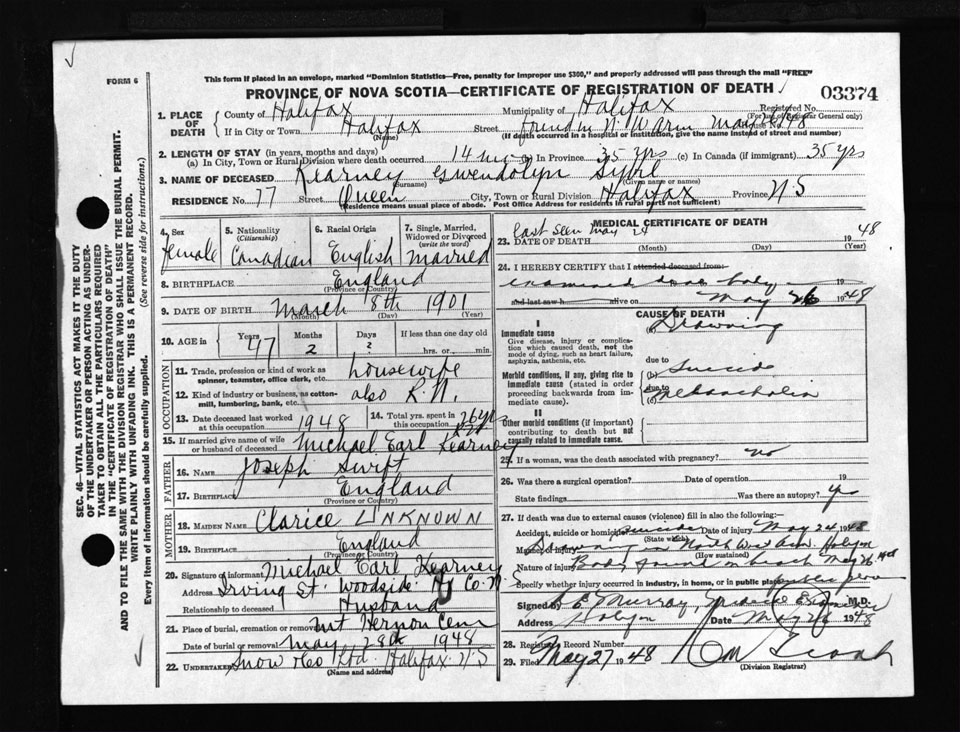 FORM 6
This form if placed in an envelope, marked "Dominion Statistics—Free, penalty for improper use $300," and properly addressed will pass through the mail "FREE"
PROVINCE OF NOVA SCOTIA—CERTIFICATE OF REGISTRATION OF DEATH
03374
1. PLACE OF DEATH
County of Halifax Municipality of Halifax Registered No.
(For use of Registrar General only)
If in City or Town Halifax Street found in N. W Arm May 26/48
(Name) (If death occurred in a hospital or institution, give the name instead of street and number)
2. LENGTH OF STAY (in years, months and days)
(a) In City, Town or Rural Division where death occurred 14 mos (b) In Province 35 yrs (c) In Canada (if immigrant) 35 yrs
3. NAME OF DECEASED Kearney Gwendolyn Sybil
(Surname) (Given name or names)
RESIDENCE No. 77 Street Queen City, Town or Rural Division Halifax Province N S
(Residence means usual place of abode. Post Office Address for residents in rural parts not sufficient)
4. Sex female
5. Nationality (Citizenship) Canadian
6. Racial Origin English
7. Single, Married, Widowed or Divorced (write the word) married
8. BIRTHPLACE England
(Province or Country)
9. DATE OF BIRTH March 18th 1901
(Month) (Day) (Year)
10. AGE in Years 47 Months 2 Days ? If less than one day old
hrs. or min.
OCCUPATION
11. Trade, profession or kind of work as spinner, teamster, office clerk, etc. housewife
12. Kind of industry or business, as cotton-mill, lumbering, bank, etc. also R.N.
13. Date deceased last worked at this occupation 1948
14. Total yrs. spent in this occupation 26 yrs
15. If married give name of wife or husband of deceased Michael Earl Kearney
FATHER
16. NAME Joseph Swift
17. BIRTHPLACE England
(Province or Country)
MOTHER
18. MAIDEN NAME Clarice UNKNOWN
19. BIRTHPLACE England
(Province or Country)
20. Signature of informant Michael Earl Kearney
Address Irving St. Woodside Hx Co. N. S
Relationship to deceased Husband
21. Place of burial, cremation or removal Mt Hernon Cem
Date of burial or removal May 28th 1948
22. UNDERTAKER Snow & Co Ltd. Halifax N S
(Name and address)
MEDICAL CERTIFICATE OF DEATH
23. DATE OF DEATH last seen May 24 1948
(Month) (Day) (Year)
24. I HEREBY CERTIFY that I attended deceased from
examined dead body 19
and last saw h alive on May 26 1948
CAUSE OF DEATH
I
Immediate cause
Give disease, injury or complication which caused death, not the mode of dying, such as heart failure, asphyxia, asthenia, etc.
(a) Drowning
due to
Morbid conditions, if any, giving rise to immediate cause (stated in order proceeding backwards from immediate cause).
(b) Suicide
due to
(c) Melancholia
II
Other morbid conditions (if important) contributing to death but not causally related to immediate cause.
25. If a woman, was the death associated with pregnancy? no
26. Was there a surgical operation? Date of operation 19
State findings Was there an autopsy? yes
27. If death was due to external causes (violence) fill in also the following:
Accident, suicide or homicide? Suicide Date of injury May 24 1948
(State which)
Manner of injury Drowning in North West Arm. Halifax
(How sustained)
Nature of injury Body found on beach May 26 1948
Specify whether injury occurred in industry, in home, or in public place public place
Signed by Murray, M.D.
Address Halifax Date May 26 1948
28. Registrar's Record Number
29. Filed May 27 1948
(Division Registrar)
SEC. 46—VITAL STATISTICS ACT MAKES IT THE DUTY
OF THE UNDERTAKER OR PERSON ACTING AS UNDER-
TAKER TO OBTAIN ALL THE PARTICULARS REQUIRED
IN THE "CERTIFICATE OF REGISTRATION OF DEATH"
AND TO FILE THE SAME WITH THE DIVISION REGISTRAR WHO SHALL ISSUE THE BURIAL PERMIT.
WRITE PLAINLY WITH UNFADING INK. THIS IS A PERMANENT RECORD.
Every item of information should be carefully supplied. (See reverse side for instructions.)